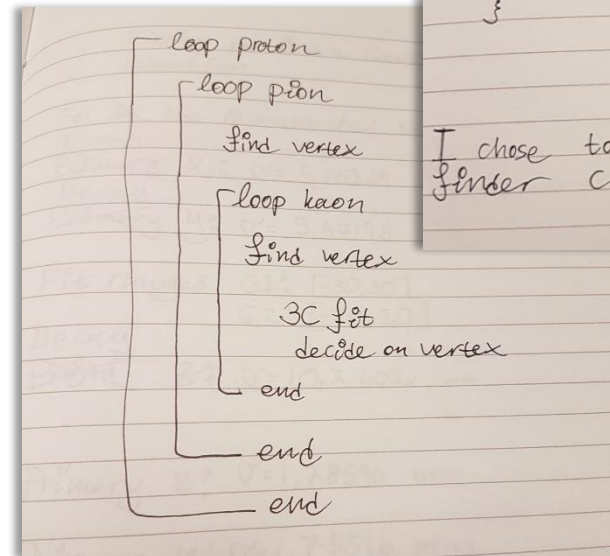 loop proton
loop pion
find vertex
loop kaon
find vertex
3C fit
decide on vertex
end
end
end
}
I chose to
finder